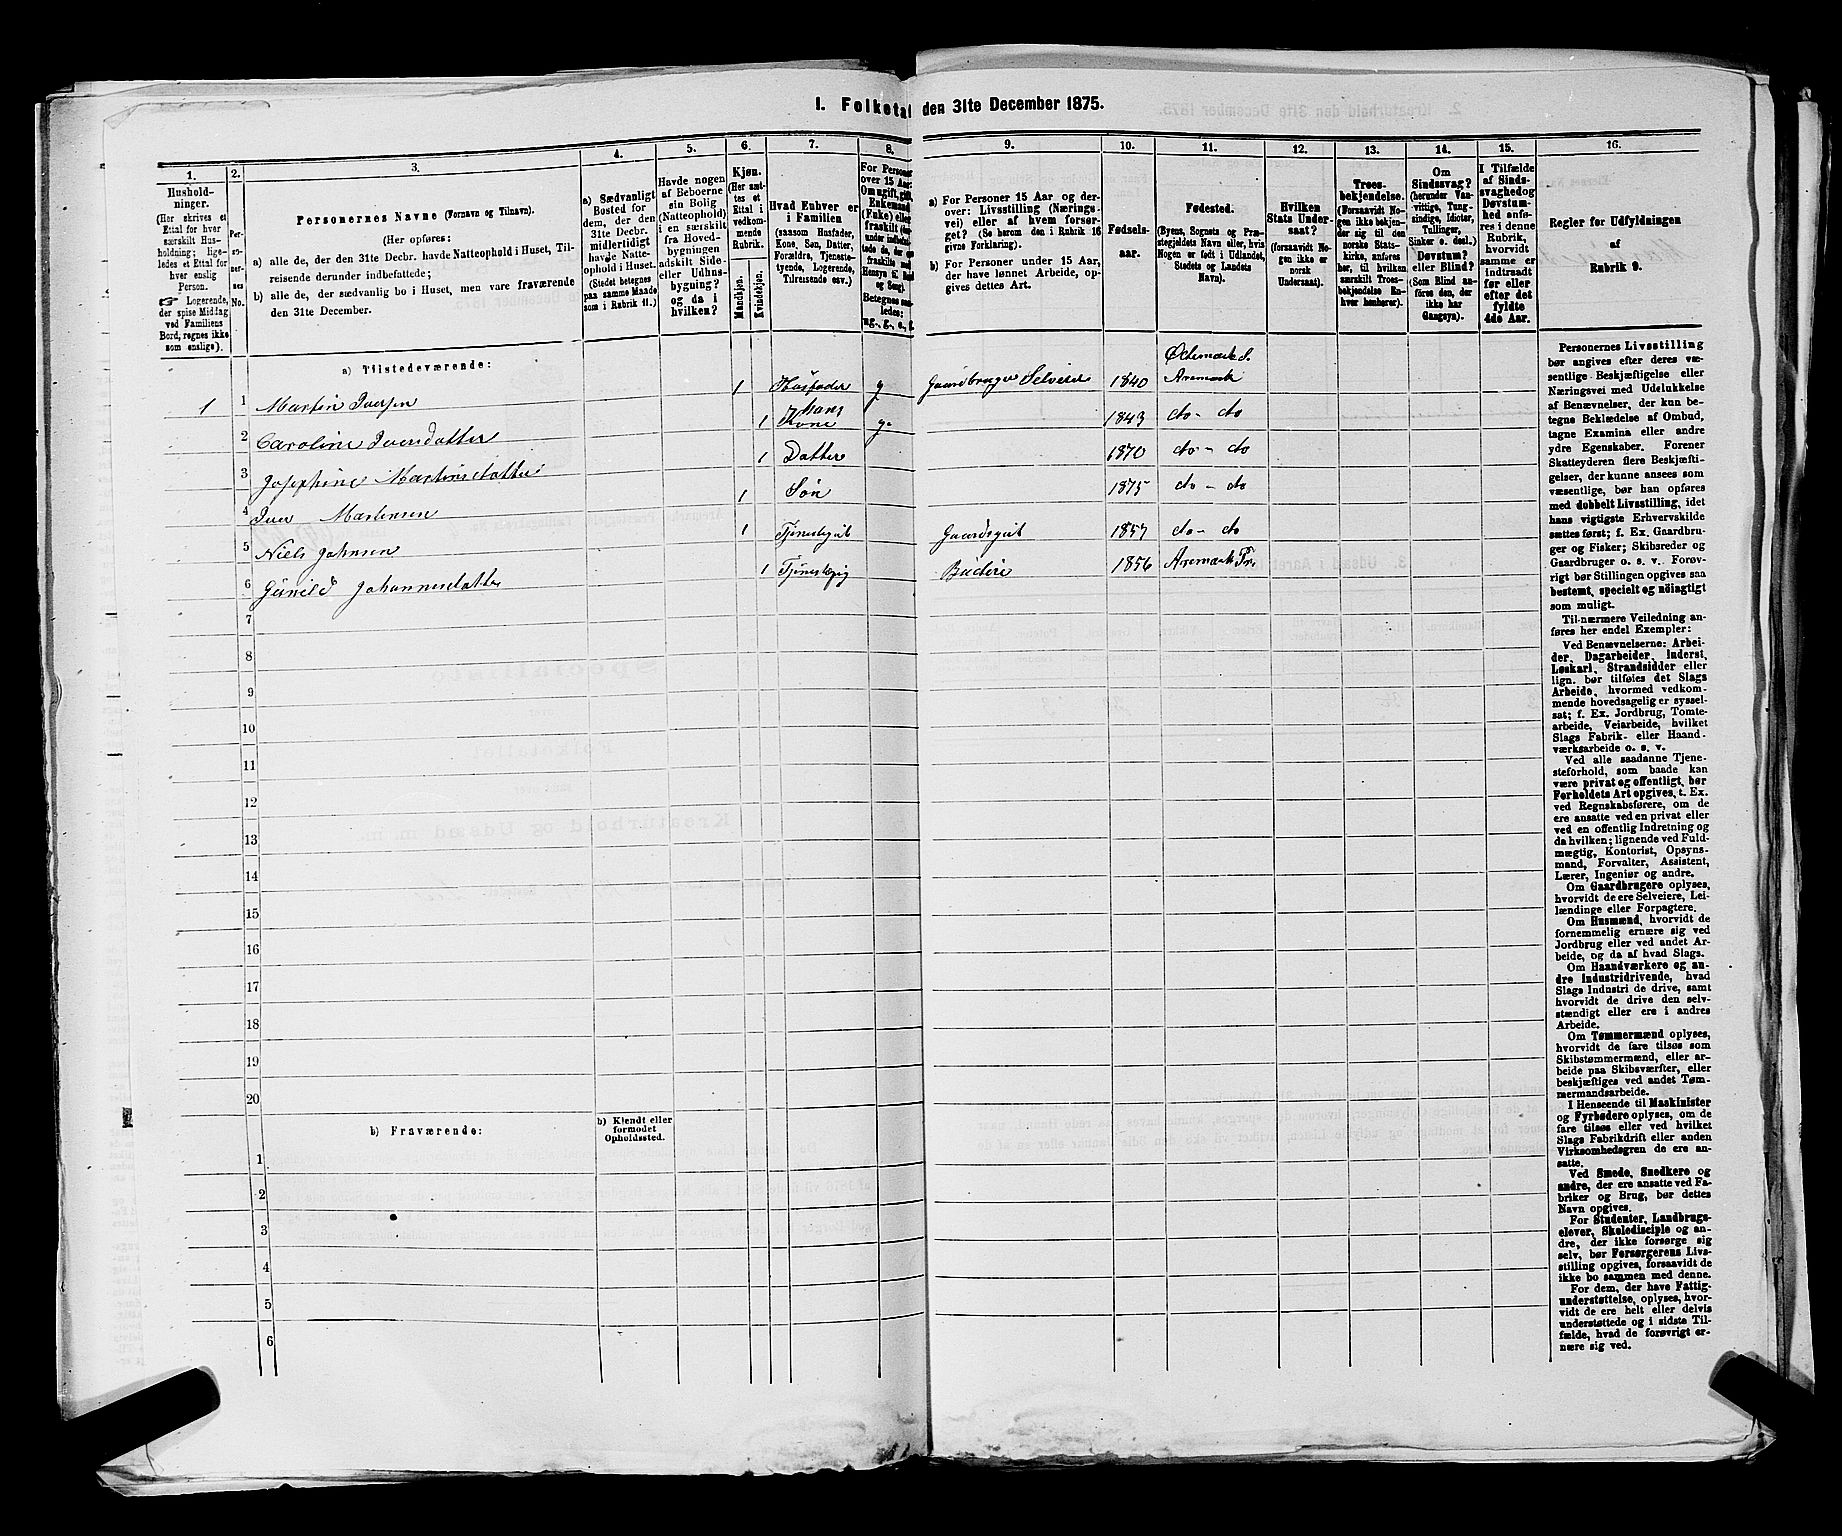 I. Folketal den 31te December 1875.
1. 2. 3. 4. 5. 6. 7. 8. 9. 10. 11. 12. 13. 14. 15. 16.
Hushold-
ninger.
(Her skrives et
Ettal for hver
særskilt Hus-
holdning; lige-
ledes et Ettal for
hver enslig
Person.
☞ Logerende,
der spise Middag
ved Familiens
Bord, regnes ikke
som enslige).
Per-
so-
ner-
nes
No.
Personernes Navne (Fornavn og Tilnavn).
(Her opføres:
a) alle de, der den 31te Decbr. havde Natteophold i Huset, Til-
reisende derunder indbefattede;
b) alle de, der sædvanlig bo i Huset, men vare fraværende
den 31te December.
a) Sædvanligt
Bosted for
dem, der den
31te Decbr.
midlertidigt
havde Natte-
ophold i Huset.
(Stedet betegnes
paa samme Maade
som i Rubrik 11.)
Havde nogen
af Beboerne
sin Bolig
(Natteophold)
i en særskilt
fra Hoved-
bygningen
adskilt Side-
eller Udhus-
bygning?
og da i
hvilken?
Kjøn.
(Her sæt-
tes et
Ettal i
vedkom-
mende
Rubrik.
Mandkjøn.
Kvindekjøn.
Hvad Enhver er
i Familien
(saasom Husfader,
Kone, Søn, Datter,
Forældre, Tjeneste-
tyende, Logerende,
Tilreisende osv.)
For Personer
over 15 Aar:
Om ugift, gift,
Enkemand
(Enke) eller
fraskilt
Betegnes saa-
ledes:
ug., g., e., f.
a) For Personer 15 Aar og der-
over: Livsstilling (Nærings-
vei) eller af hvem forsør-
get? (Se herom den i Rubrik 16
givne Forklaring).
b) For Personer under 15 Aar,
der have lønnet Arbeide, op-
gives dettes Art.
Fødsels-
aar.
Fødested.
(Byens, Sognets og Præ-
stegjeldets Navn eller, hvis
Nogen er født i Udlandet,
Stedets og Landets
Navn).
Hvilken
Stats Under-
saat?
(forsaavidt No-
gen ikke er
norsk
Undersaat).
Troes-
bekjendelse.
(Forsaavidt No-
gen ikke bekjen-
der sig til den
norske Stats-
kirke, anføres
her, til hvilken
særskilt Troes-
bekjendelse En-
hver henhører).
Om
Sindssvag?
(herunder Van-
vittige, Tung-
sindige, Idioter,
Tullinger,
Sinker o. desl.)
Døvstum?
eller Blind?
(Som Blind an-
føres den, der
ikke har
Gangsyn).
I Tilfælde
af Sinds-
svaghed og
Døvstum-
hed anfø-
res i denne
Rubrik,
hvorvidt
samme er
indtraadt
før eller
efter det
fyldte
4de Aar.
Regler for Udfyldningen
af
Rubrik 9.
a) Tilstedeværende:
1 1 Martin Iversen 1 Husfader g Gaardbruger Selveier 1840 Ødemark S. Aremark
2 Caroline Iversdatter 1 Hans Kone g. 1843 do - do
3 Josephine Martinsdatter 1 Datter 1870 do - do
4 Iver Martinsen 1 Søn 1875 do - do
5 Niels Johnsen 1 Tjenestegut Gaardsgut 1857 do - do
6 Gunild Johannesdatter 1 Tjenestepig Budeie 1856 Aremark Pr.
7
8
9
10
11
12
13
14
15
16
17
18
19
20
b) Fraværende:
b) Kjendt eller
formodet
Opholdssted.
1
2
3
4
5
6
Personernes Livsstilling
bør angives efter deres væ-
sentlige Beskjæftigelse eller
Næringsvei med Udelukkelse
af Benævnelser, der kun be-
tegne Beklædelse af Ombud,
tagne Examina eller andre
ydre Egenskaber. Forener
Skatteyderen flere Beskjæfti-
gelser, der kunne ansees som
væsentlige, bør han opføres
med dobbelt Livsstilling, idet
hans vigtigste Erhvervskilde
sættes først; f. Ex. Gaardbru-
ger og Fisker; Skibsreder og
Gaardbruger o. s. v. Forøv-
rigt bør Stillingen opgives saa
bestemt, specielt og nöiagtigt
som muligt.
Til nærmere Veiledning an-
føres her endel Exempler:
Ved Benævnelserne: Arbei-
der, Dagarbeider, Inderst,
Løskarl, Strandsidder eller
lign. bør tilføies det Slags
Arbeide, hvormed vedkom-
mende hovedsagelig er syssel-
sat; f. Ex. Jordbrug, Tomte-
arbeide, Veiarbeide, hvilket
Slags Fabrik- eller Haand-
værksarbeide o. s. v.
Ved alle saadanne Tjene-
steforhold, som baade kan
være privat og offentligt, bør
Forholdets Art opgives, t. Ex.
ved Regnskabsførere, om de
ere ansatte ved en privat eller
ved en offentlig Indretning og
da hvilken; lignende ved Fuld-
mægtig, Kontorist, Opsyns-
mand, Forvalter, Assistent,
Lærer, Ingeniør og andre.
Om Gaardbrugere oplyses,
hvorvidt de ere Selveiere, Lei-
lændinge eller Forpagtere.
Om Husmænd, hvorvidt de
fornemmelig ernære sig ved
Jordbrug eller ved andet Ar-
beide, og da af hvad Slags.
Om Haandværkere og an-
dre Industridrivende, hvad
Slags Industri de drive, samt
hvorvidt de drive den selv-
stændigt eller ere i andres
Arbeide.
Om Tømmermænd oplyses,
hvorvidt de fare tilsøs som
Skibstømmermænd, eller ar-
beide paa Skibsværfter, eller
beskjæftiges ved andet Tøm-
mermandsarbeide.
I Henseende til Maskinister
og Fyrbødere oplyses, om de
fare tilsøs eller ved hvilket
Slags Fabrikdrift eller anden
Virksomhedsgren de ere an-
satte.
Ved Smede, Snedkere og
andre, der ere ansatte ved Fa-
briker og Brug, bør dettes
Navn opgives.
For Studenter, Landbrugs-
elever, Skoledisciple og an-
dre, der ikke forsørge sig
selv, bør Forsørgerens Livs-
stilling opgives, forsaavidt de
ikke bo sammen med denne.
For dem, der have Fattig-
understøttelse, oplyses, hvor-
vidt de ere helt eller delvis
understøttede og i sidste Til-
fælde, hvad de forøvrigt er-
nære sig ved.